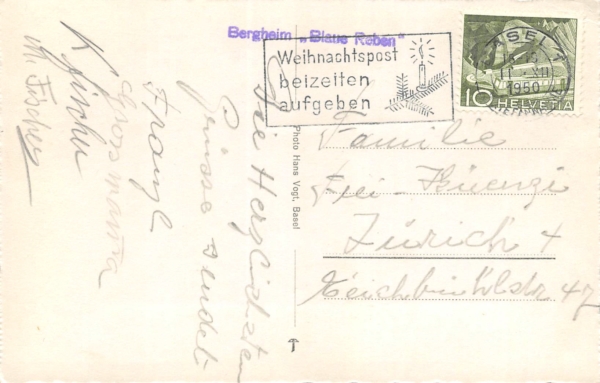 Bergheim „Blaue Reben“
Weihnachtspost
beizeiten
aufgeben
BASEL 1
XII
1950
10 HELVETIA
Photo Hans Vogt, Basel
Die Herzlichsten
Grüsse sendet
Franzl
Grossmama
K. Fischer
M. Fischer
Familie
Frei-Kuenzi
Zürich 4
47